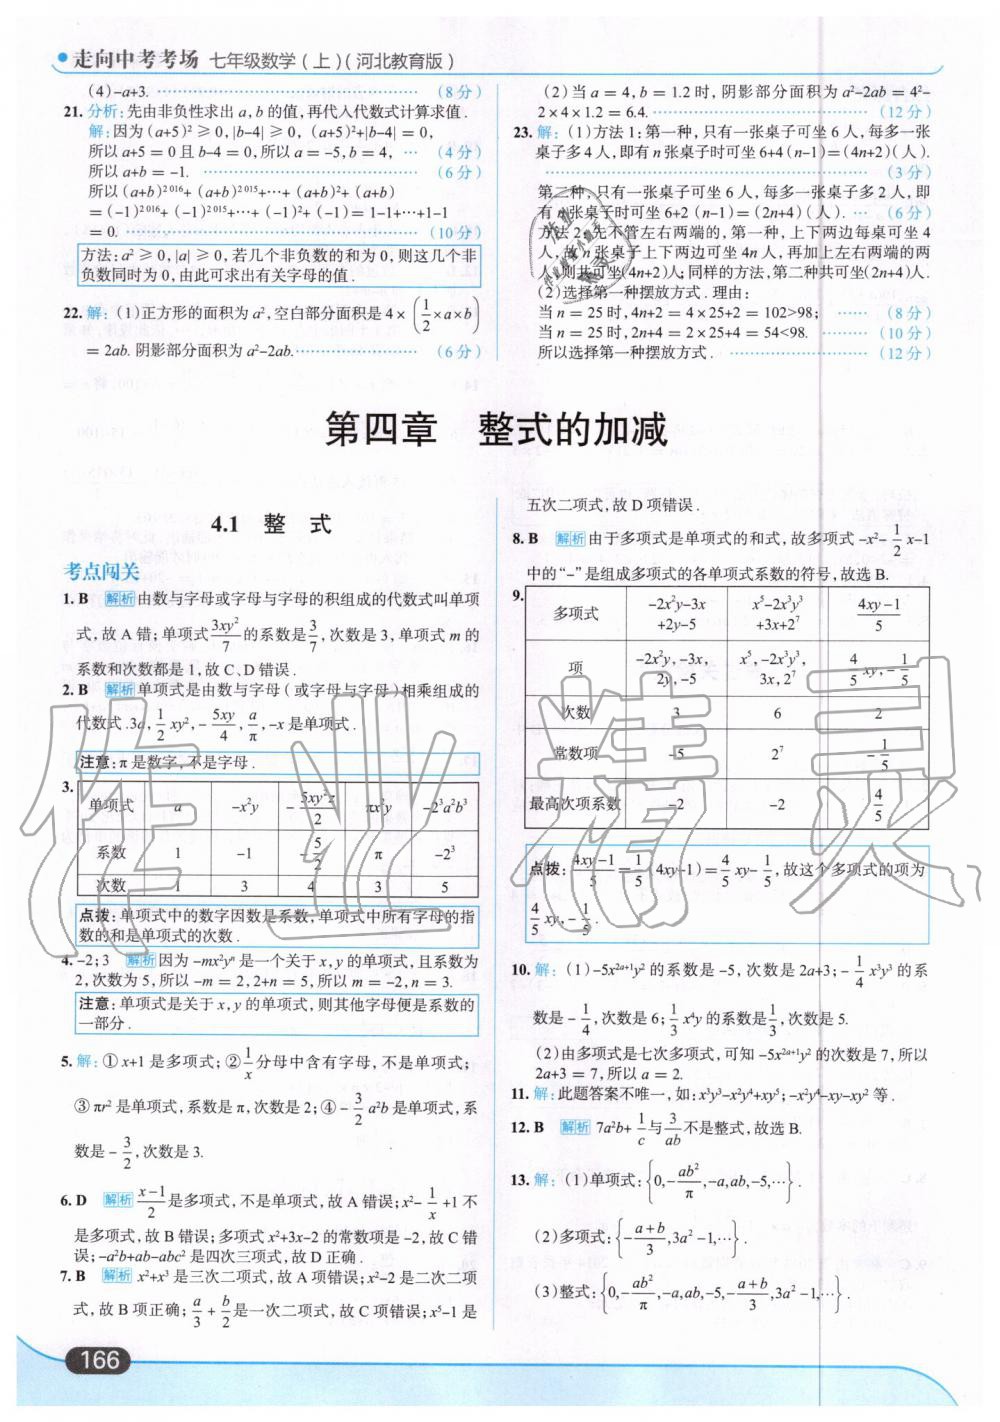 走向中考考场 七年级数学(上)(河北教育版)
(4)-a+3. (8分)
21. 分析:先由非负性求出a,b的值,再代入代数式计算求值.
解:因为(a+5)²≥0,|b-4|≥0,(a+5)²+|b-4|=0,
所以a+5=0且b-4=0,所以a=-5,b=4, … (4分)
所以a+b=-1. (6分)
所以(a+b)²⁰¹⁶+(a+b)²⁰¹⁵+…+(a+b)²+(a+b)
=(-1)²⁰¹⁶+(-1)²⁰¹⁵+…+(-1)²+(-1)=1-1+…+1-1
=0. (10分)
方法:a²≥0,|a|≥0,若几个非负数的和为0,则这几个非
负数同时为0,由此可求出有关字母的值.
22. 解:(1)正方形的面积为a²,空白部分面积是4×(1/2×a×b)
=2ab.阴影部分面积为a²-2ab. (6分)
(2)当a=4,b=1.2时,阴影部分面积为a²-2ab=4²-
2×4×1.2=6.4. (12分)
23. 解:(1)方法1:第一种,只有一张桌子可坐6人,每多一张
桌子多4人,即有n张桌子时可坐6+4(n-1)=(4n+2)(人).
(3分)
第二种,只有一张桌子可坐6人,每多一张桌子多2人,即
有n张桌子时可坐6+2(n-1)=(2n+4)(人). … (6分)
方法2:先不管左右两端的,第一种,上下两边每桌可坐4
人,故n张桌子上下两边可坐4n人,再加上左右两端的两
人,则共可坐(4n+2)人;同样的方法,第二种共可坐(2n+4)人.
(2)选择第一种摆放方式.理由:
当n=25时,4n+2=4×25+2=102>98; …… (8分)
当n=25时,2n+4=2×25+4=54<98. (10分)
所以选择第一种摆放方式. (12分)
第四章 整式的加减
4.1 整 式
考点闯关
1. B 解析 由数与字母或字母与字母的积组成的代数式叫单项
式,故A错;单项式3xy²/7的系数是3/7,次数是3,单项式m的
系数和次数都是1,故C,D错误.
2. B 解析 单项式是由数与字母(或字母与字母)相乘组成的
代数式.3a,1/2xy²,-5xy/4,a/π,-x是单项式.
注意:π是数字,不是字母.
3. 单项式 a -x²y -5xy²z/2 πx²y -2³a²b³
系数 1 -1 -5/2 π -2³
次数 1 3 4 3 5
点拨:单项式中的数字因数是系数,单项式中所有字母的指
数的和是单项式的次数.
4. -2;3 解析 因为-mx²yⁿ是一个关于x,y的单项式,且系数为
2,次数为5,所以-m=2,2+n=5,所以m=-2,n=3.
注意:单项式是关于x,y的单项式,则其他字母便是系数的
一部分.
5. 解:①x+1是多项式;②1/x分母中含有字母,不是单项式;
③πr²是单项式,系数是π,次数是2;④-3/2a²b是单项式,系
数是-3/2,次数是3.
6. D 解析 x-1/2是多项式,不是单项式,故A错误;x²-1/x+1不
是多项式,故B错误;多项式x²+3x-2的常数项是-2,故C错
误;-a²b+ab-abc²是四次三项式,故D正确.
7. B 解析 x²+x³是三次二项式,故A项错误;x²-2是二次二项
式,故B项正确;a/3+b/2是一次二项式,故C项错误;x⁵-1是
五次二项式,故D项错误.
8. B 解析 由于多项式是单项式的和式,故多项式-x²-1/2x-1
中的"-"是组成多项式的各单项式系数的符号,故选B.
9. 多项式 -2x²y-3x+2y-5 x⁵-2x³y³+3x+2⁷ 4xy-1/5
项 -2x²y,-3x,2y,-5 x⁵,-2x³y³,3x,2⁷ 4/5xy,-1/5
次数 3 6 2
常数项 -5 2⁷ -1/5
最高次项系数 -2 -2 4/5
点拨:4xy-1/5=1/5(4xy-1)=4/5xy-1/5,故这个多项式的项为
4/5xy,-1/5.
10. 解:(1)-5x²ᵃ⁺¹y²的系数是-5,次数是2a+3;-1/4x³y³的系
数是-1/4,次数是6;1/3x⁴y的系数是1/3,次数是5.
(2)由多项式是七次多项式,可知-5x²ᵃ⁺¹y²的次数是7,所以
2a+3=7,所以a=2.
11. 解:此题答案不唯一,如:x³y³-x²y⁴+xy⁵;-x²y⁴-xy-xy²等.
12. B 解析 7a²b+1/c与3/ab不是整式,故选B.
13. 解:(1)单项式:{0,-ab²/π,-a,ab,-5,…}.
(2)多项式:{-a+b/3,3a²-1,…}.
(3)整式:{0,-ab²/π,-a,ab,-5,-a+b/3,3a²-1,…}.
166
作业精灵